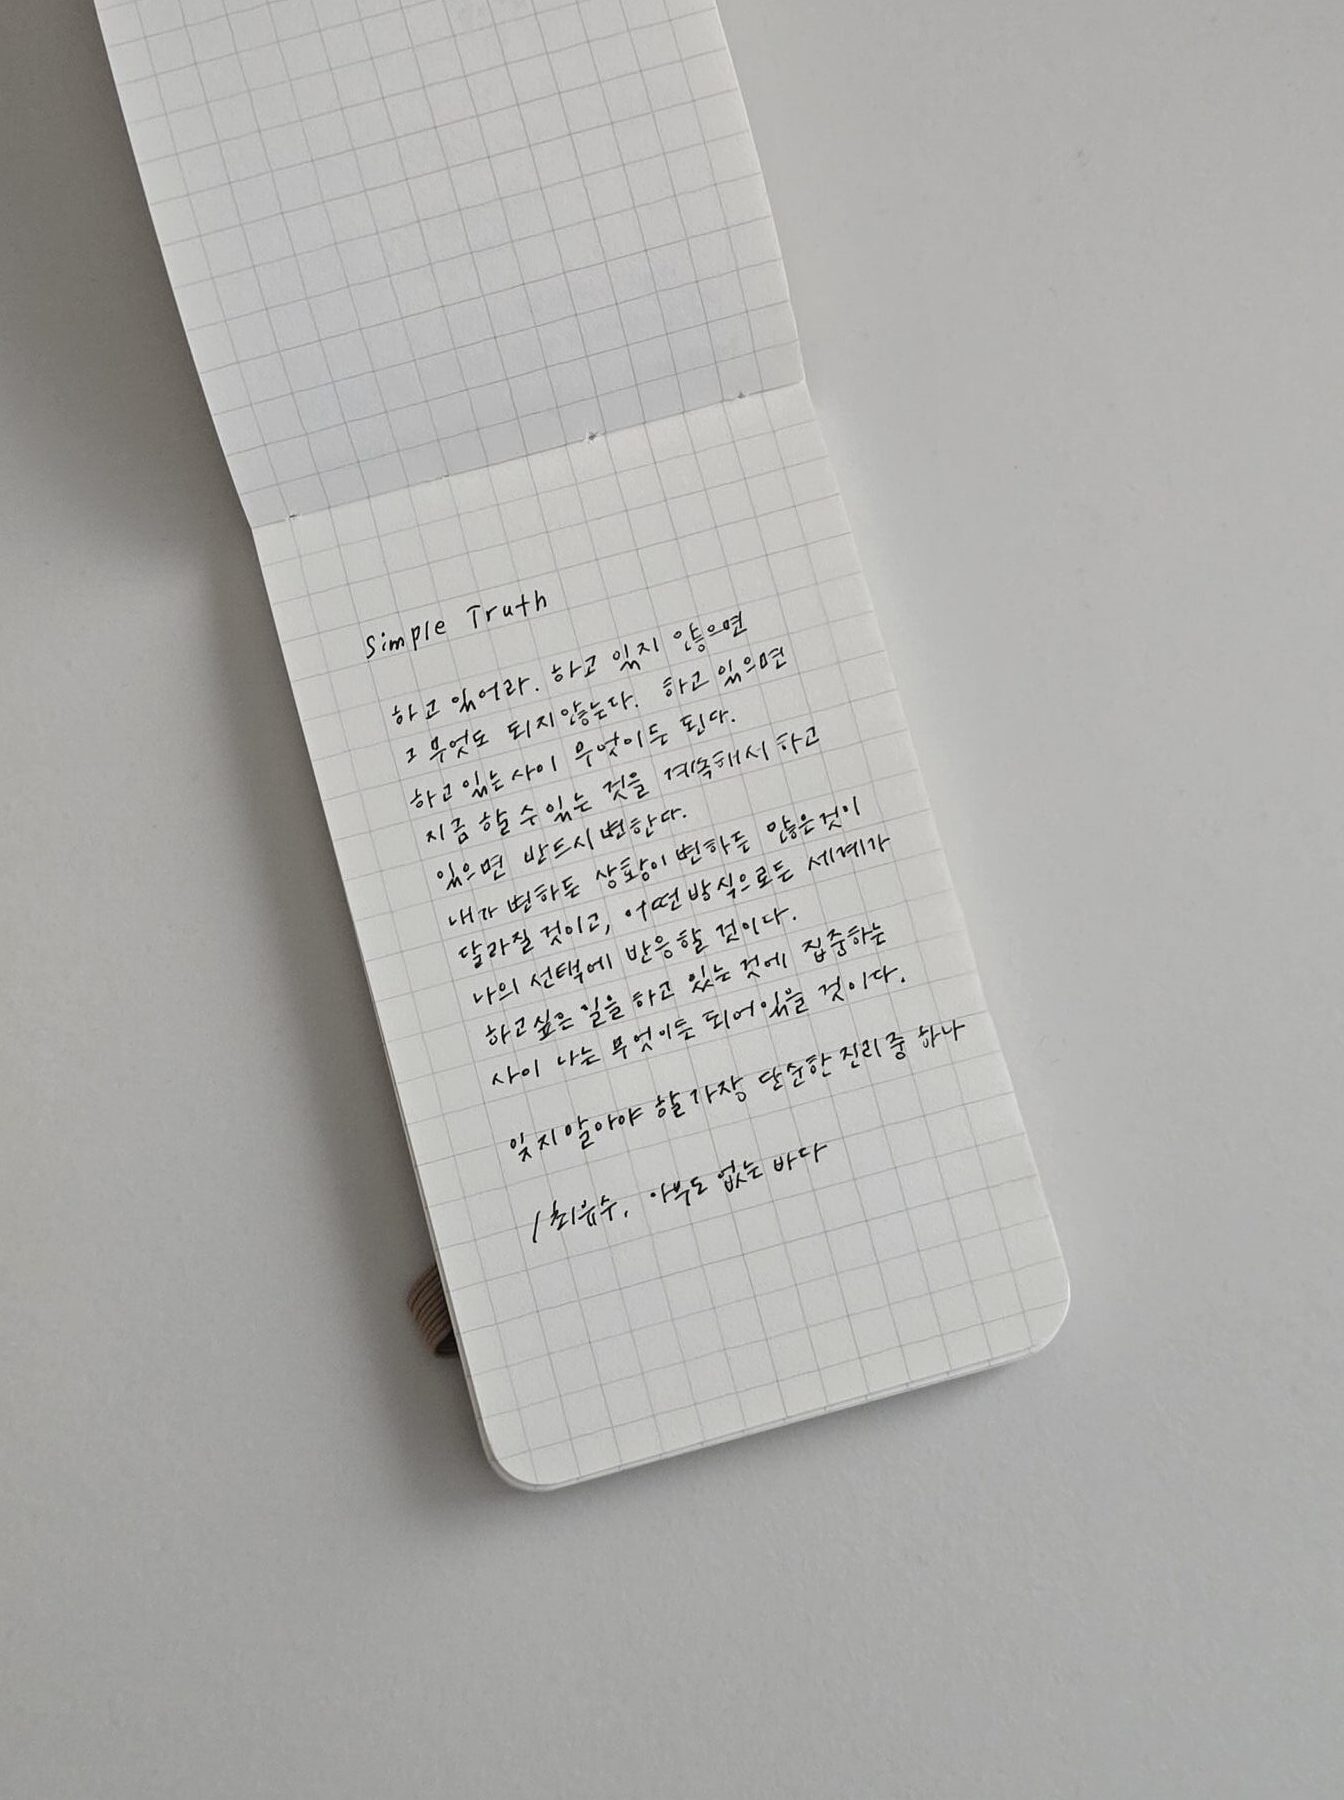 Simple Truth
하고 있어라. 하고 있지 않으면
그 무엇도 되지 않는다. 하고 있으면
하고 있는 사이 무엇이든 된다.
지금 할 수 있는 것을 계속해서 하고
있으면 반드시 변한다.
내가 변하든 상황이 변하든 않은것이
달라질 것이고, 어떤 방식으로든 세계가
나의 선택에 반응할 것이다.
하고싶은 일을 하고 있는 것에 집중하는
사이 나는 무엇이든 되어있을 것이다.
잊지말아야 할 가장 단순한 진리 중 하나
/최유수, 아무도 없는 바다